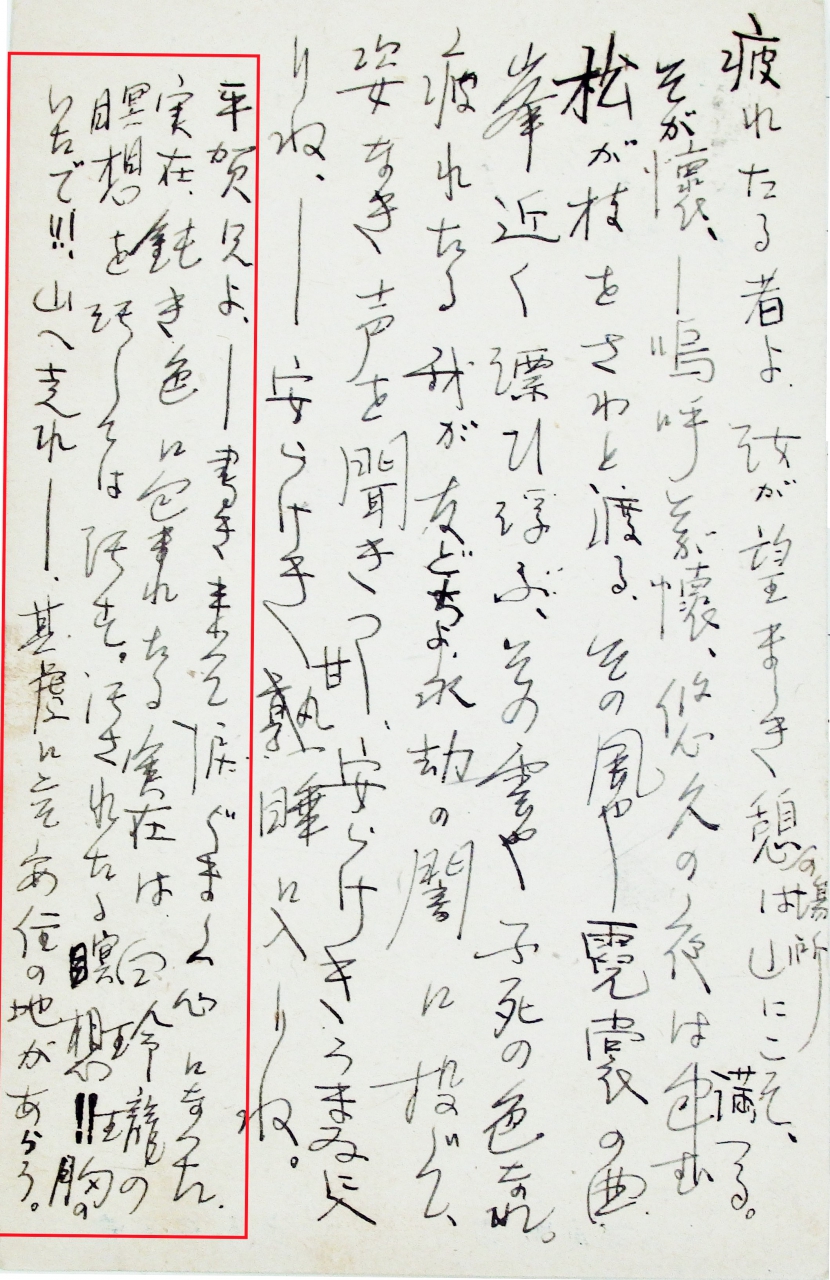 疲れたる者よ、汝が望ましき憩の場所は山にこそ、
そが懐、―嗚呼そが懐、悠久の夜は包む
満つる。
松が枝をさわと渡る、その風や―霓裳の曲
峯近く漂ひ浮ぶ、その雲や不死の色なれ。
疲れたる我が友どちよ、永劫の闇に投げて、
姿なき声を聞きつゝ、甘し安らけきうまゐに入
りね、―安らけき熟睡に入りね。
平賀兄よ、―書き来て涙ぐましい心になつた。
実在、鈍き色に包まれたる実在は白玲瓏の
瞑想を汚しては汚す。汚されたる瞑想!!胸の
いたで!!!、山へ走れ―、其處に互安住の地があらう。